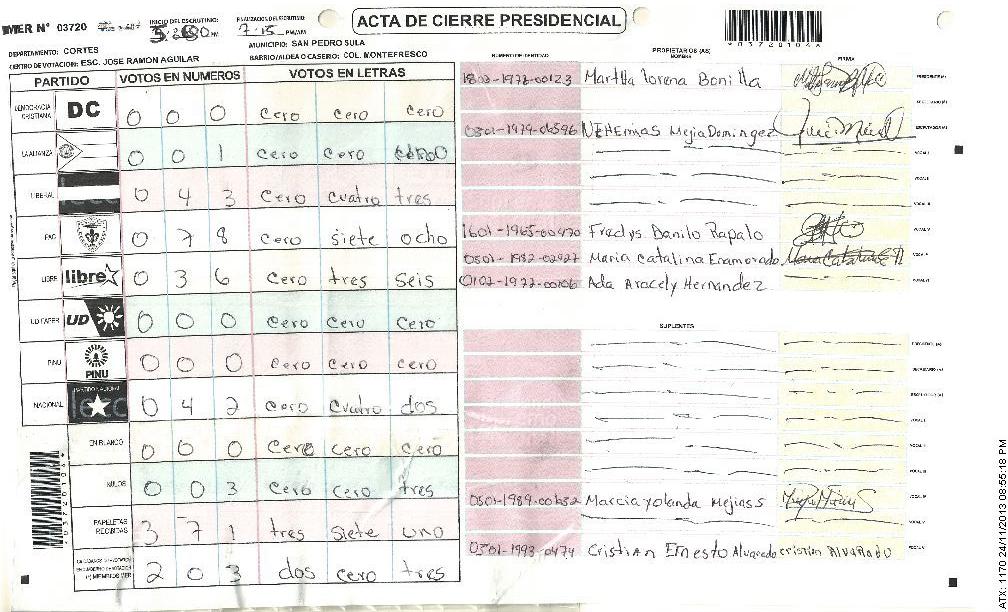 MER N° 03720
INICIO DEL ESCRUTINIO:
FINALIZACION DEL ESCRUTINIO:
7:15 PM/AM
ACTA DE CIERRE PRESIDENCIAL
*03720104*
DEPARTAMENTO: CORTES
MUNICIPIO: SAN PEDRO SULA
CENTRO DE VOTACION: ESC. JOSE RAMON AGUILAR
BARRIO/ALDEA O CASERIO: COL. MONTEFRESCO
PARTIDO VOTOS EN NUMEROS VOTOS EN LETRAS
DEMOCRACIA CRISTIANA DC 0 0 0 cero cero cero
LA ALIANZA 0 0 1 cero cero
LIBERAL 0 4 3 cero cuatro tres
PAC 0 7 8 cero siete ocho
LIBRE libre 0 3 6 cero tres seis
UD FAPER UD 0 0 0 cero cero cero
PINU PINU 0 0 0 cero cero cero
NACIONAL PARTIDO NACIONAL 0 4 2 cero cuatro dos
EN BLANCO 0 0 0 cero cero cero
NULOS 0 0 3 cero cero tres
PAPELETAS RECIBIDAS 3 7 1 tres siete uno
2 0 3 dos cero tres
PROPIETARIOS (AS)
NUMERO DE IDENTIDAD NOMBRE FIRMA
Martha lorena Bonilla PRESIDENTE (A)
SECRETARIO (A)
0501-1979-06596 NEHEMIAS Mejia Dominguez ESCRUTADOR (A)
VOCAL I
VOCAL II
VOCAL III
1601-1965-00470 Fredys Danilo Rapalo VOCAL IV
0501-1982-02927 Maria Catalina Enamorado VOCAL V
0102-1977-00106 Ada Aracely Hernandez VOCAL VI
SUPLENTES
PRESIDENTE (A)
SECRETARIO (A)
ESCRUTADOR (A)
VOCAL I
VOCAL II
VOCAL III
0501-1989-00632 Marcia yolanda Mejia VOCAL IV
VOCAL V
Cristian Ernesto Alvarado cristian Alvarado VOCAL VI
*03720104*
ATX: 1170 24/11/2013 08:55:18 PM